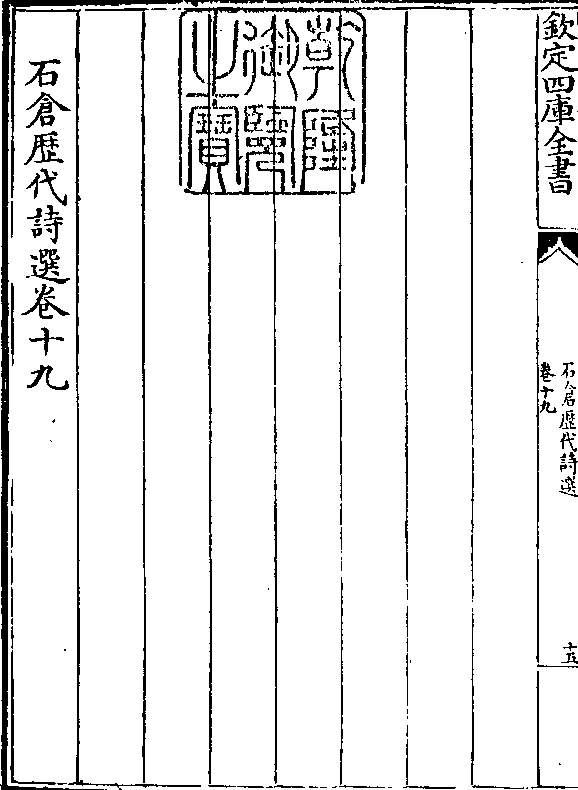 欽定四庫全書
石倉歷代詩選
卷十九
十五
乾隆
御覽
之寶
石倉歷代詩選卷十九